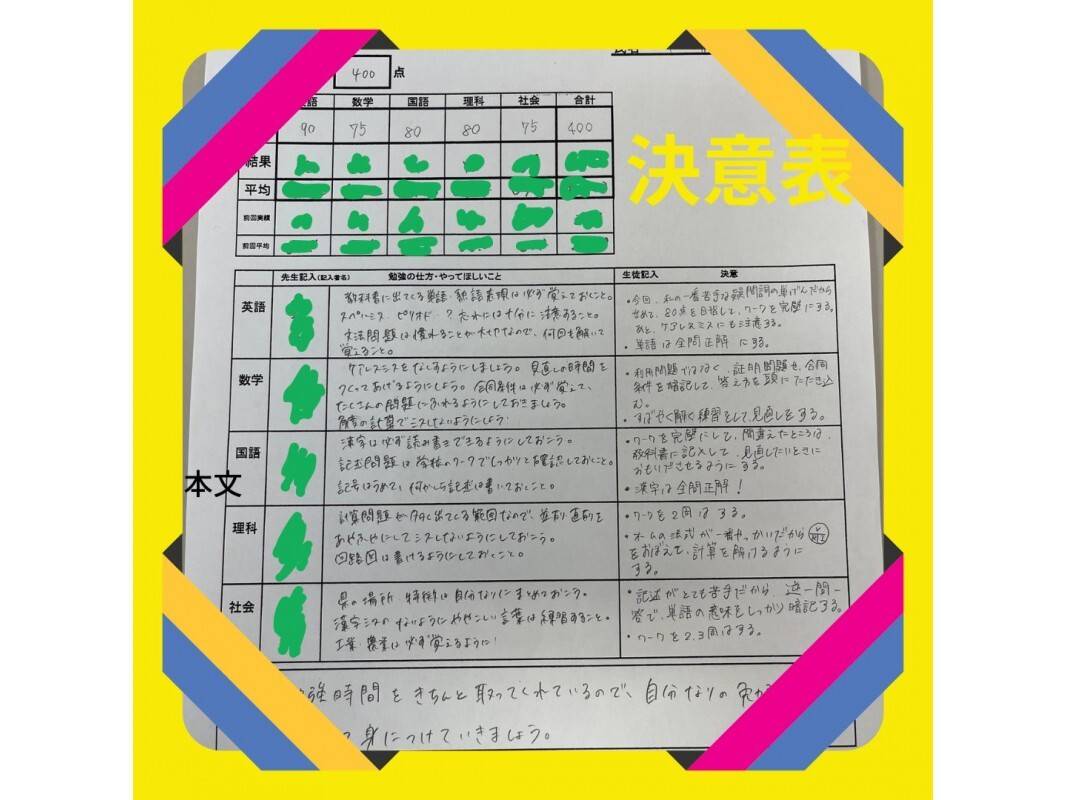 決意表
400 点
数学 国語 理科 社会 合計
90 75 80 80 75 400
結果
平均
前回実績
前回平均
先生記入(記入者名) 勉強の仕方・やってほしいこと 生徒記入 決意
英語
教科書に出てくる単語・熟語表現は必ず覚えておくこと。
スペルミス ピリオド・?忘れには十分に注意すること。
文法問題は慣れることが大切なので、何回も解いて
覚えること。
・今回、私の一番苦手な疑問詞の単げんだから
80点を目指して、ワークを完璧にする。
あと、ケアレスミスにも注意する。
・単語は全問正解にする。
数学
ケアレスミスをなくすようにしましょう。見直しの時間を
つくってあげるようにしよう。合同条件は必ず覚えて、
たくさんの問題にふれるようにしておきましょう。
角度の計算でミスしないようにしよう!
・利用問題ではなく、証明問題や、合同
条件を暗記して、答え方を頭にたたき込
む。
・すばやく解く練習をして、見直しをする。
国語
漢字は必ず読み書きできるようにしておこう。
記述問題は学校のワークでしっかりと確認しておくこと。
記号はうめて、何かしら記述は書いておくこと。
・ワークを完璧にして、間違えたところは、
教科書に記入して、見直したいときに
おもいださせるようにする。
・漢字は全問正解!
本文
理科
計算問題が多く出てくる範囲なので、並列・直列を
あやふやにしてミスしないようにしておこう。
回路図は書けるようにしておくこと。
・ワークを2周はする。
・オームの法式が一番やっかいだから
をおぼえて、計算を解けるように
する。
社会
県の場所、特徴は自分なりにまとめておこう。
漢字ミスのないようにややこしい言葉は練習すること。
工業・農業は必ず覚えるように!
・記述がとても苦手だから、一問一
答で、単語の意味をしっかり暗記する。
・ワークを2.3周はする。
強時間をきちんと取ってくれているので、自分なりの
身につけていきましょう。